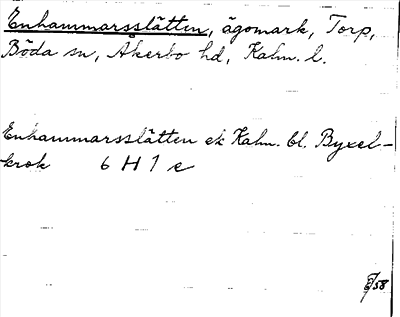 Enhammarsslätten, ägomark, Torp,
Böda sn, Åkerbo hd, Kalm. l.
Enhammarsslätten ek Kalm. bl. Byxel-
krok 6 H 1 e
/58